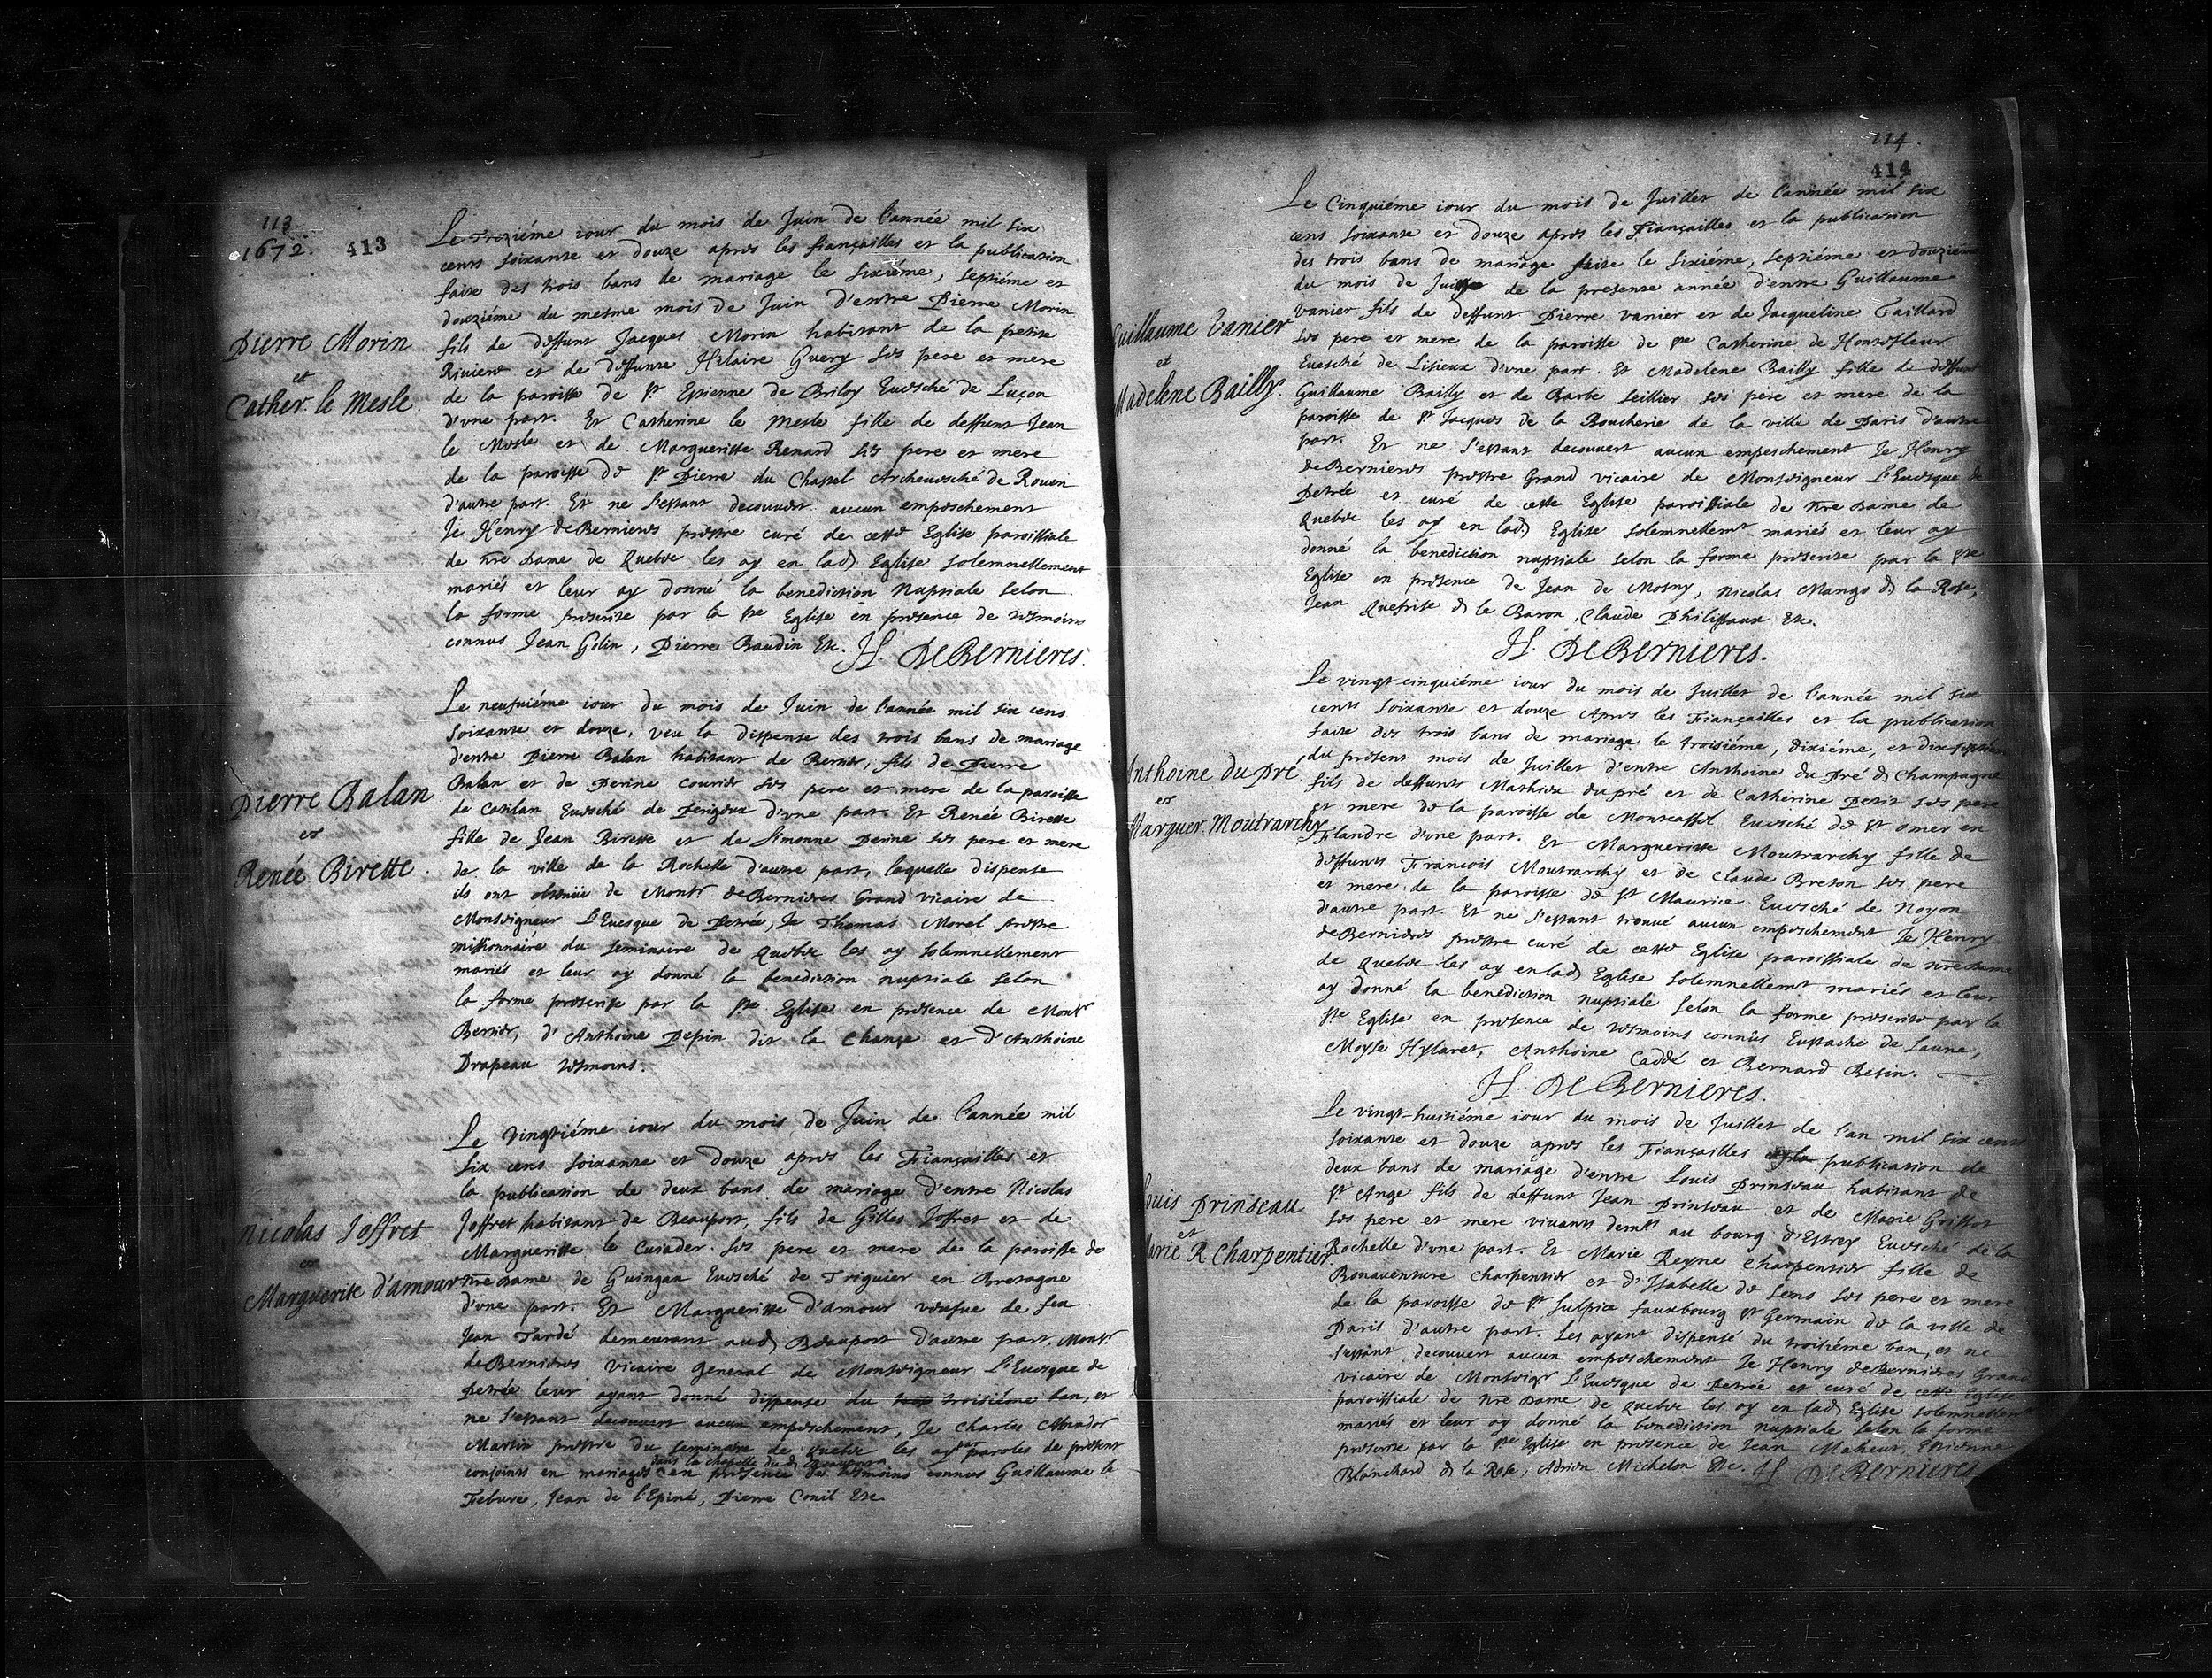 113
1672. 413
Le trezième iour du mois de Juin de l'année mil six
cents soixante et douze apres les fiançailles et la publication
faite des trois bans de mariage le sixiéme, septiéme et
douziéme du mesme mois de Juin d'entre Pierre Morin
fils de deffunt Jacques Morin habitant de la petite
Riviere et de deffunte Hilaire Guery ses pere et mere
de la paroisse de St Estienne de Briloy Euesché de Luçon
d'vne part. Et Catherine le Mesle fille de deffunt Jean
le Mesle et de Margueritte Renard ses pere et mere
de la paroisse de St Pierre du Chastel Archeuesché de Rouen
d'autre part. Et ne s'estant decouuert aucun empeschement
Je Henry de Bernieres prestre curé de cette Eglise paroissiale
de nre Dame de Quebec les ay en lad. Eglise solemnellement
mariés et leur ay donné la benediction Nuptiale selon
la forme prescrite par la Ste Eglise en presence de tesmoins
connus Jean Gelin, Pierre Baudin Etc. H. DeBernieres.
Pierre Morin
et
Cather. le Mesle.
Le neufuiéme iour du mois de Juin de l'année mil six cens
soixante et douze, veu la dispense des trois bans de mariage
d'entre Pierre Balan habitant de Bertier, fils de Pierre
Balan et de Perine Courier ses pere et mere de la paroisse
de Catilan Euesché de Perigeux d'vne part. Et Renée Birette
fille de Jean Birette et de Simonne Perine ses pere et mere
de la ville de la Rochelle d'autre part, laquelle dispense
ils ont obtenüe de Monsr de Bernieres Grand vicaire de
Monseigneur L'Euesque de Petrée, Je Thomas Morel prestre
missionnaire du seminaire de Quebec les ay solemnellement
mariés et leur ay donné la benediction nuptiale selon
la forme prescrite par la Ste Eglise en presence de Monsr
Bertier, d'Anthoine Pepin dit la Chance et d'Anthoine
Drapeau tesmoins.
Pierre Balan
et
Renée Birette.
Le vingtiéme iour du mois de Juin de l'année mil
six cens soixante et douze apres les Fiançailles et
la publication de deux bans de mariage d'entre Nicolas
Joffret habitant de Beauport, fils de Gilles Joffret et de
Margueritte le Cuiader ses pere et mere de la paroisse de
nre Dame de Guingan Euesché de Triguier en Bretagne
d'vne part. Et Margueritte d'amour veufue de feu
Jean Tardé demeurant aud. Beauport d'autre part. Monsr
de Bernieres vicaire general de Monseigneur L'Euesque de
petrée leur ayant donné dispense du troisiéme ban, et
ne s'estant decouuert aucun empeschement, Je Charles Amador
Martin prestre du seminaire de Quebec les ay par paroles de present
conjoints en mariages dans la chapelle dud. Beauport en presence des tesmoins connus Guillaume le
Febure, Jean de l'Epiné, Pierre Conil Etc
Nicolas Joffret
et
Marguerite d'amour.
114.
414
Le Cinquiéme iour du mois de Juillet de l'année mil six
cens soixante et douze apres les Fiançailles et la publication
des trois bans de mariage faite le sixiéme, septiéme et douziéme
du mois de de la presente année d'entre Guillaume
Vanier fils de deffunt Pierre Vanier et de Jacqueline Taillard
ses pere et mere de la paroisse de Ste Catherine de Honrefleur
Euesché de Lisieux d'vne part. Et Madelene Bailly fille de deffunt
Guillaume Bailly et de Barbe Seillier ses pere et mere de la
paroisse de St Jacques de la Boucherie de la ville de Paris d'autre
part. Et ne s'estant decouuert aucun empeschement Je Henry
de Bernieres prestre Grand vicaire de Monseigneur L'Euesque de
Petrée et curé de cette Eglise paroissiale de nre Dame de
Quebec les ay en lad. Eglise solemnellemt mariés et leur ay
donné la benediction nuptiale selon la forme prescrite par la Ste
Eglise en presence de Jean de Mosny, Nicolas Mango d. la Rose,
Jean Quefrise d. le Baron, Claude Philippaux Etc.
H. DeBernieres.
Guillaume Vanier
et
Madelene Bailly.
Le vingt cinquiéme iour du mois de Juillet de l'année mil six
cents soixante et douze Apres les Fiançailles et la publication
faite des trois bans de mariage le troisiéme, dixiéme, et dix septiéme
du present mois de Juillet d'entre Anthoine du Pré d. Champagne
fils de deffunts Mathieu dupré et de Catherine Petit ses pere
et mere de la paroisse de Montcassel Euesché de St omer en
Flandre d'vne part. Et Margueritte Moutrarchy fille de
deffunts Francois Moutrarchy et de Claude Breton ses pere
et mere de la paroisse de St Maurice Euesché de Noyon
d'autre part. Et ne s'estant trouué aucun empeschement Je Henry
de Bernieres prestre curé de cette Eglise paroissiale de nre dame
de Quebec les ay en lad. Eglise solemnellemt mariés et leur
ay donné la benediction nuptiale selon la forme prescrite par la
Ste Eglise en presence de tesmoins connûs Eustache de Laune,
Moyse Hylaret, Anthoine Caddé et Bernard Betin.
H. DeBernieres.
Anthoine du Pré
et
Marguer. Moutrarchy
Le vingt-huitiéme iour du mois de Juillet de l'an mil six cents
soixante et douze apres les Fiançailles et la publication de
deux bans de mariage d'entre Louis Prinseau habitant de
St Ange fils de deffunt Jean Prinseau et de Marie Griffot
ses pere et mere viuants demts au bourg d'Estrey Euesché de la
Rochelle d'vne part. Et Marie Reyne Charpentier fille de
Bonauenture Charpentier et d'Isabelle de Sens ses pere et mere
de la paroisse de St Sulpice fauxbourg St Germain de la ville de
Paris d'autre part. Les ayant dispensé du troisiéme ban, et ne
s'estant decouuert aucun empeschement Je Henry de Bernieres Grand
vicaire de Monseigr L'Euesque de Petrée et curé de cette Eglise
paroissiale de nre Dame de Quebec les ay en lad. Eglise solemnellemt
mariés et leur ay donné la benediction nuptiale selon la forme
prescrite par la Ste Eglise en presence de Jean Maheut, Estienne
Blanchard d. la Rose, Adrien Michelon Etc. H. DeBernieres
Louis Prinseau
et
Marie R. Charpentier.